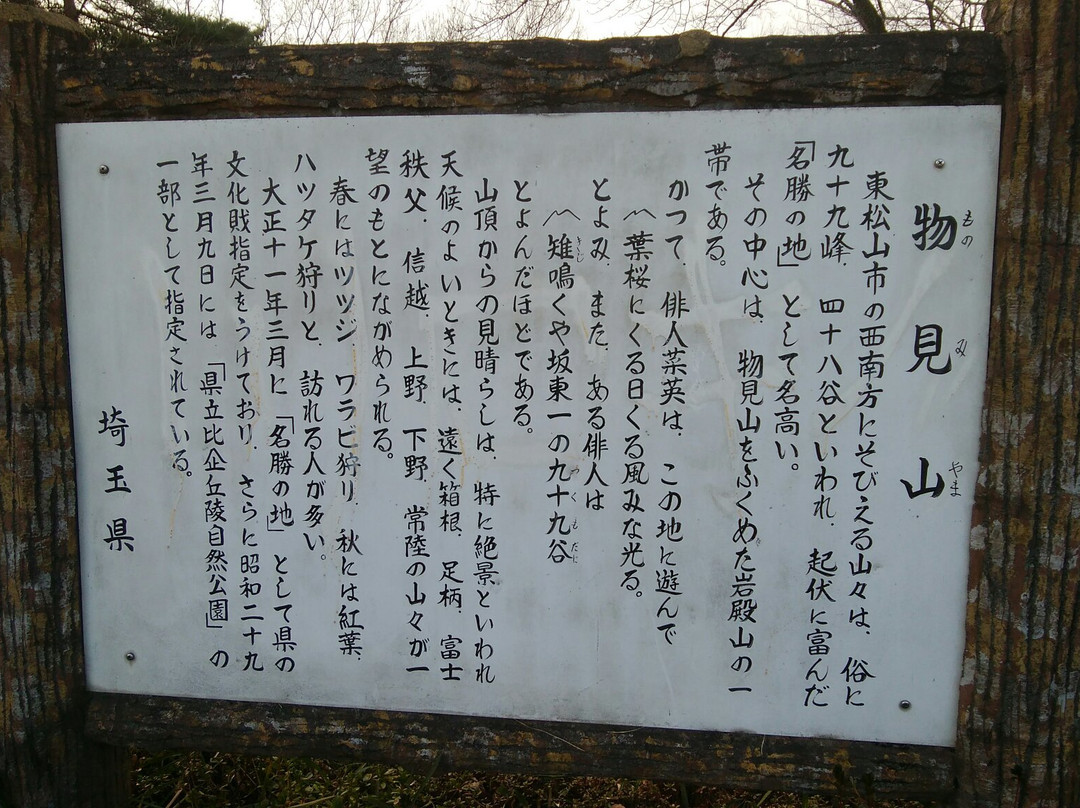 物見山
もの み やま
東松山市の西南方にそびえる山々は、俗に
九十九峰、四十八谷といわれ、起伏に富んだ
「名勝の地」として名高い。
その中心は、物見山をふくめた岩殿山の一
帯である。
かつて、俳人菜英は、この地に遊んで
〽葉桜にくる日くる風みな光る。
とよみ、また、ある俳人は
〽雉鳴くや坂東一の九十九谷
きじ つくもだに
とよんだほどである。
山頂からの見晴らしは、特に絶景といわれ
天候のよいときには、遠く箱根、足柄、富士
秩父、信越、上野、下野、常陸の山々が一
望のもとにながめられる。
春にはツツジ、ワラビ狩り、秋には紅葉、
ハツタケ狩りと、訪れる人が多い。
大正十一年三月に「名勝の地」として県の
文化財指定をうけており、さらに昭和二十九
年三月九日には「県立比企丘陵自然公園」の
一部として指定されている。
埼玉県